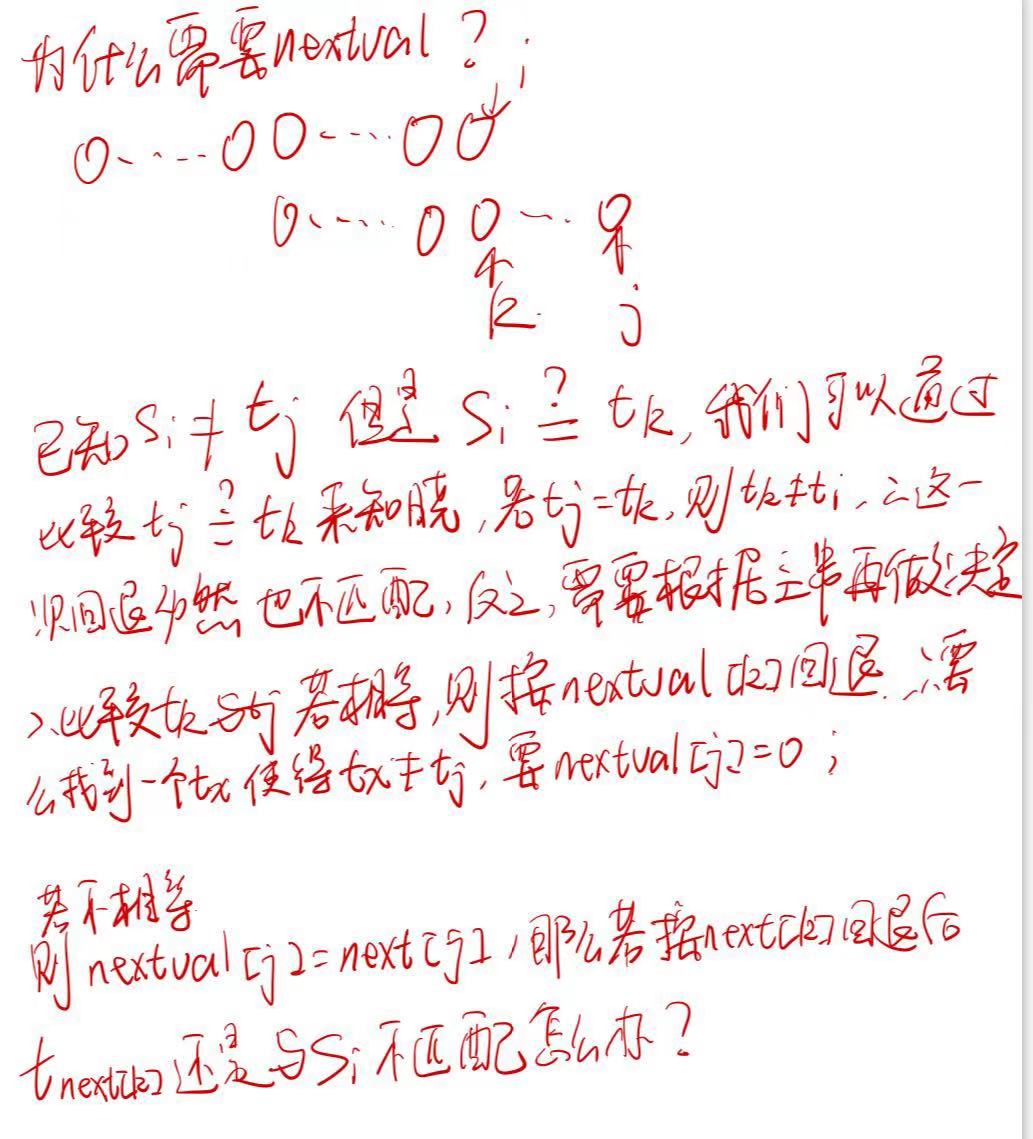 为什么需要nextval？
i
0·····00····00
0·····00···0
k j
已知 Si≠tj 但是 Si ≟ tk, 我们可以通过
比较 tj ≟ tk 来知晓, 若tj=tk, 则tk≠ti, ∴这一
次回退必然也不匹配, 反之, 需要根据主串再做决定
∴比较tk与j若相等, 则按nextval[k]回退. ∴要
么找到一个tx使得tx≠tj, 要nextval[j]=0;
若不相等
则nextval[j]=next[j], 那么若按next[k]回退后
tnext[k]还是与Si不匹配怎么办？